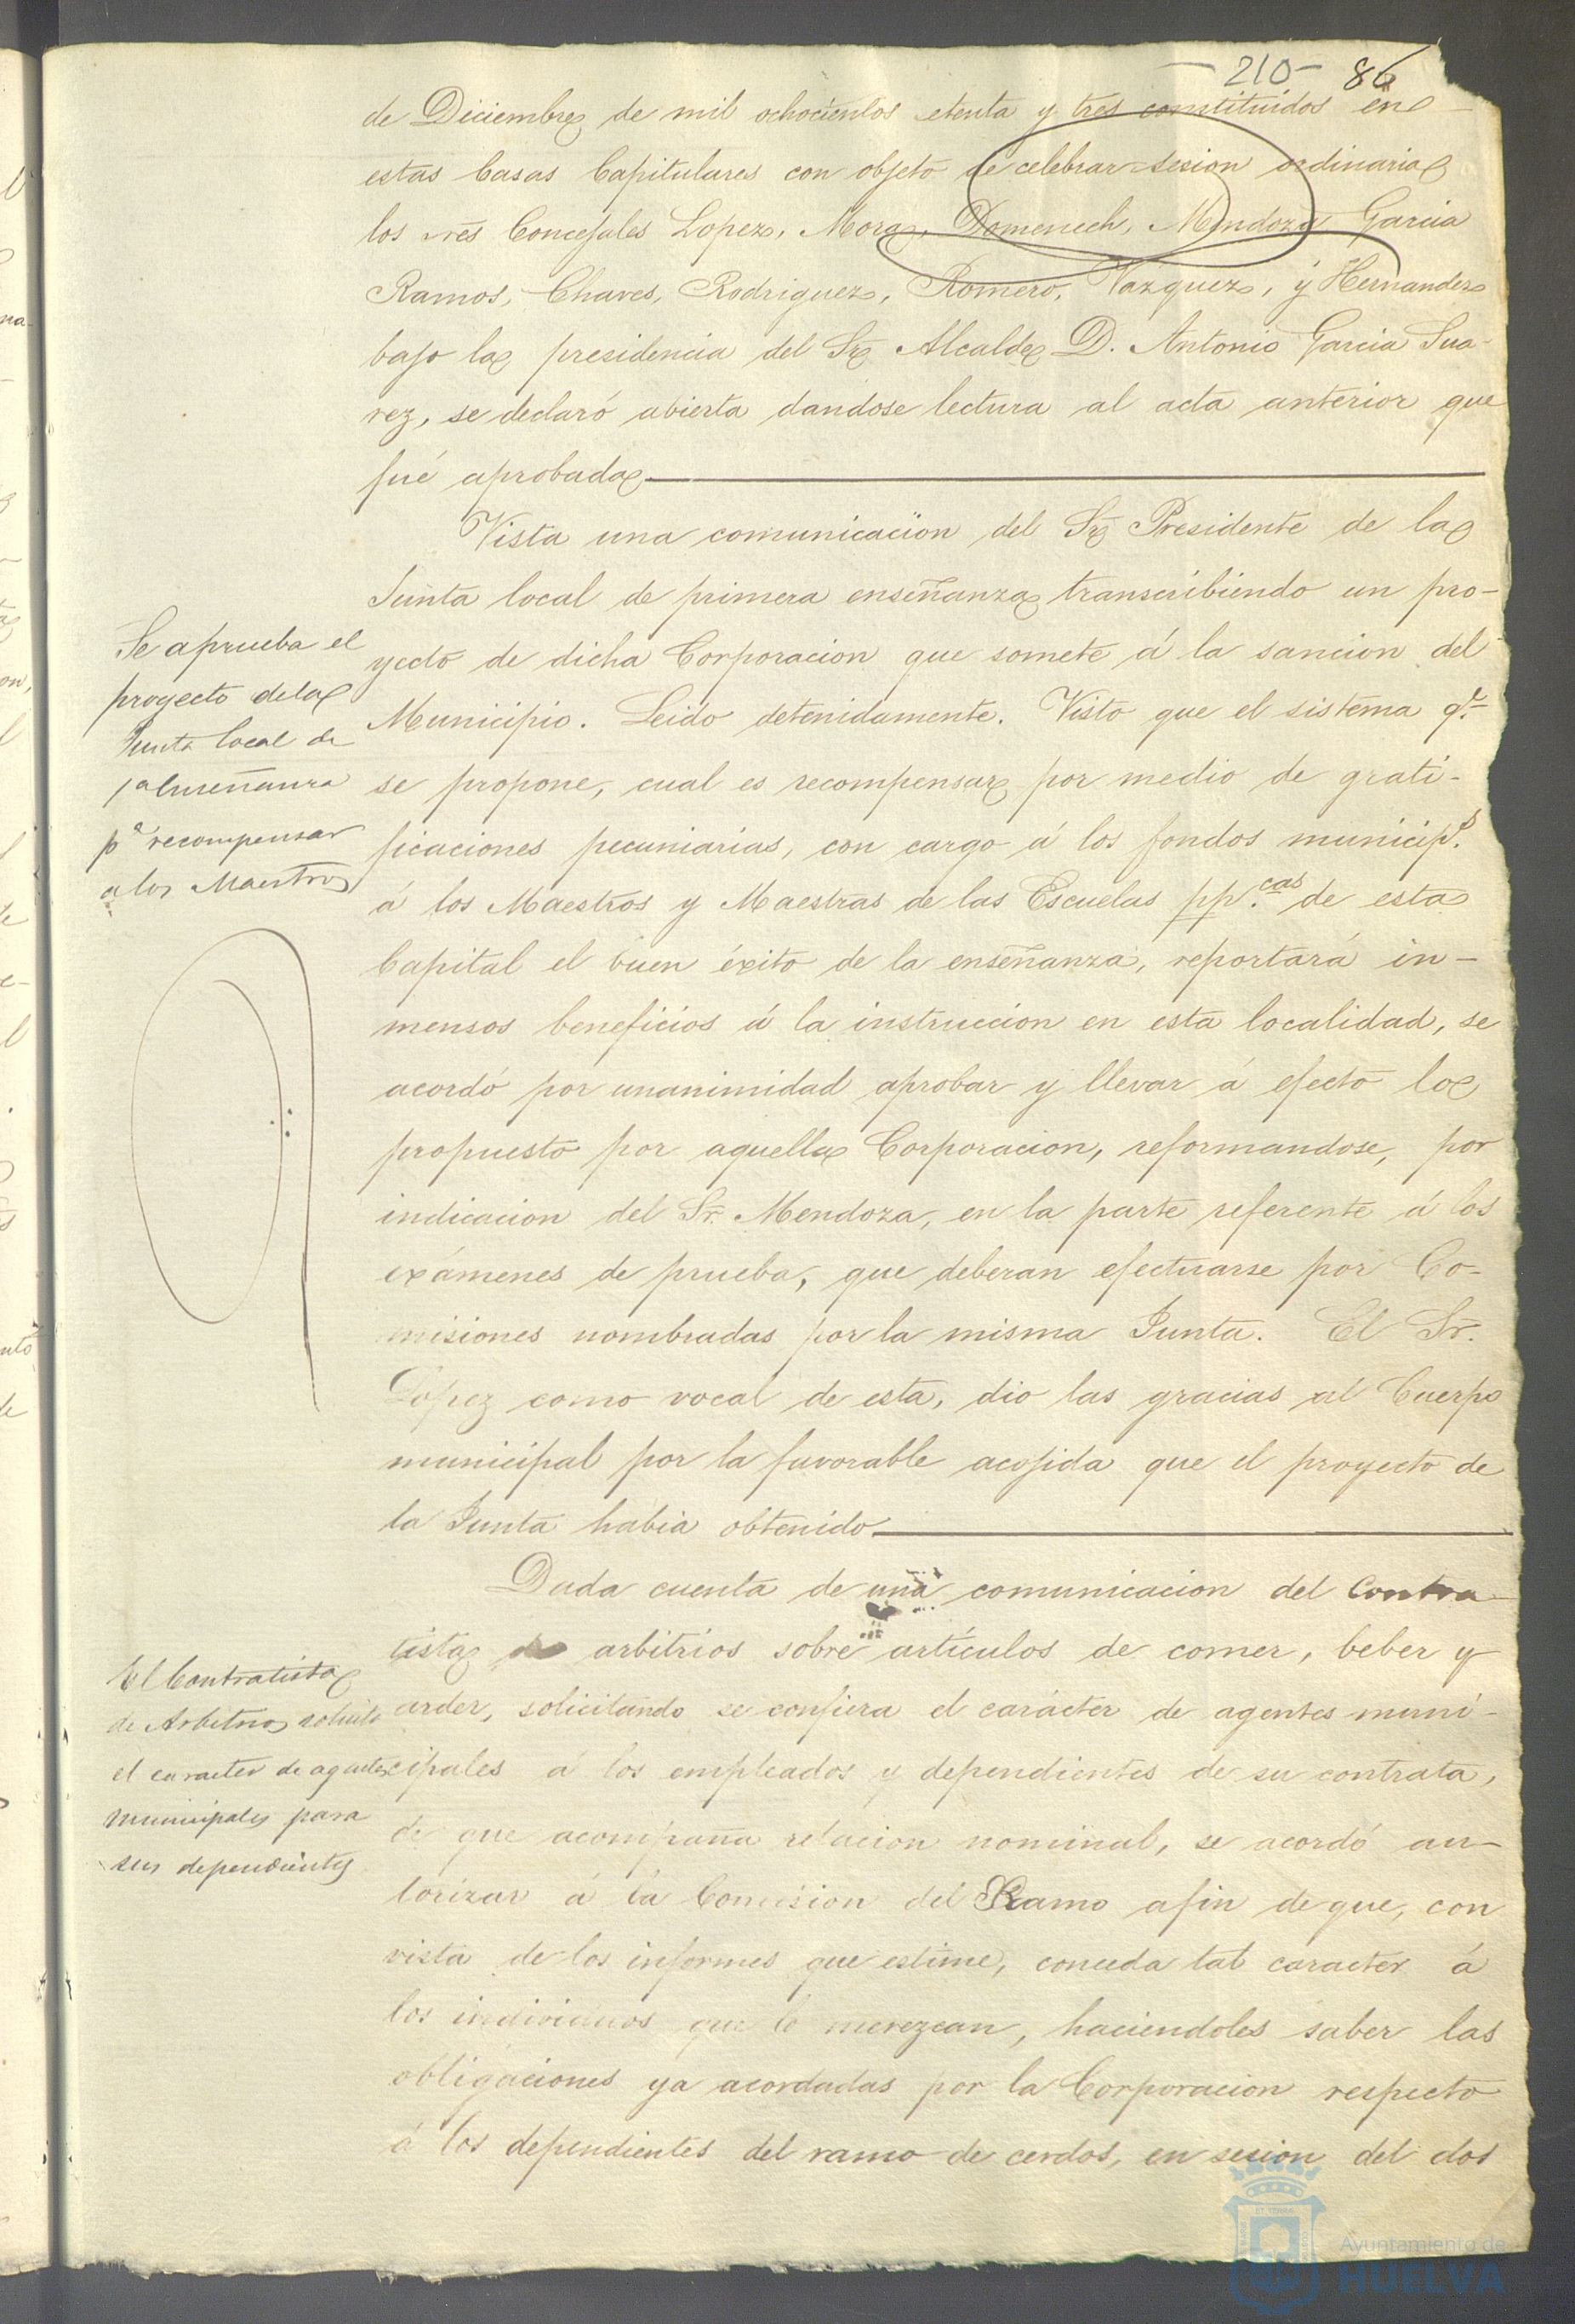 - 210 - 86
de Diciembre de mil ochocientos setenta y tres constituidos en
estas Casas Capitulares con objeto de celebrar sesion ordinaria
los sres Concejales Lopez, Mora, Domenech, Mendoza Garcia
Ramos, Chaves, Rodriguez, Romero, Vazquez, y Hernandez
bajo la presidencia del Sr Alcalde D. Antonio Garcia Sua-
rez, se declaró abierta dandose lectura al acta anterior que
fué aprobada
Vista una comunicacion del Sr Presidente de la
Junta local de primera enseñanza transcribiendo un pro-
yecto de dicha Corporacion que somete á la sancion del
Municipio. Leido detenidamente. Visto que el sistema q.e
se propone, cual es recompensar por medio de grati-
ficaciones pecuniarias, con cargo á los fondos municip.s
á los Maestros y Maestras de las Escuelas pp.cas de esta
Capital el buen éxito de la enseñanza, reportará in-
mensos beneficios á la instruccion en esta localidad, se
acordó por unanimidad aprobar y llevar á efecto lo
propuesto por aquella Corporacion, reformandose, por
indicacion del Sr. Mendoza, en la parte referente á los
exámenes de prueba, que deberan efectuarse por Co-
misiones nombradas por la misma Junta. El Sr.
Lopez como vocal de esta, dio las gracias al Cuerpo
municipal por la favorable acojida que el proyecto de
la Junta habia obtenido
Se aprueba el
proyecto de la
Junta local de
1a Enseñanza
p.a recompensar
a los Maestros
Dada cuenta de una comunicacion del Contra-
tista de arbitrios sobre artículos de comer, beber y
arder, solicitando se confiera el carácter de agentes muni-
cipales á los empleados y dependientes de su contrata,
de que acompaña relacion nominal, se acordó au-
torizar á la Comision del Ramo afin de que, con
vista de los informes que estime, conceda tal caracter á
los individuos que lo merezcan, haciendoles saber las
obligaciones ya acordadas por la Corporacion respecto
á los dependientes del ramo de cerdos, en sesion del dos
El Contratista
de Arbitrios solicita
el caracter de agentes
municipales para
sus dependientes
Ayuntamiento de
HUELVA